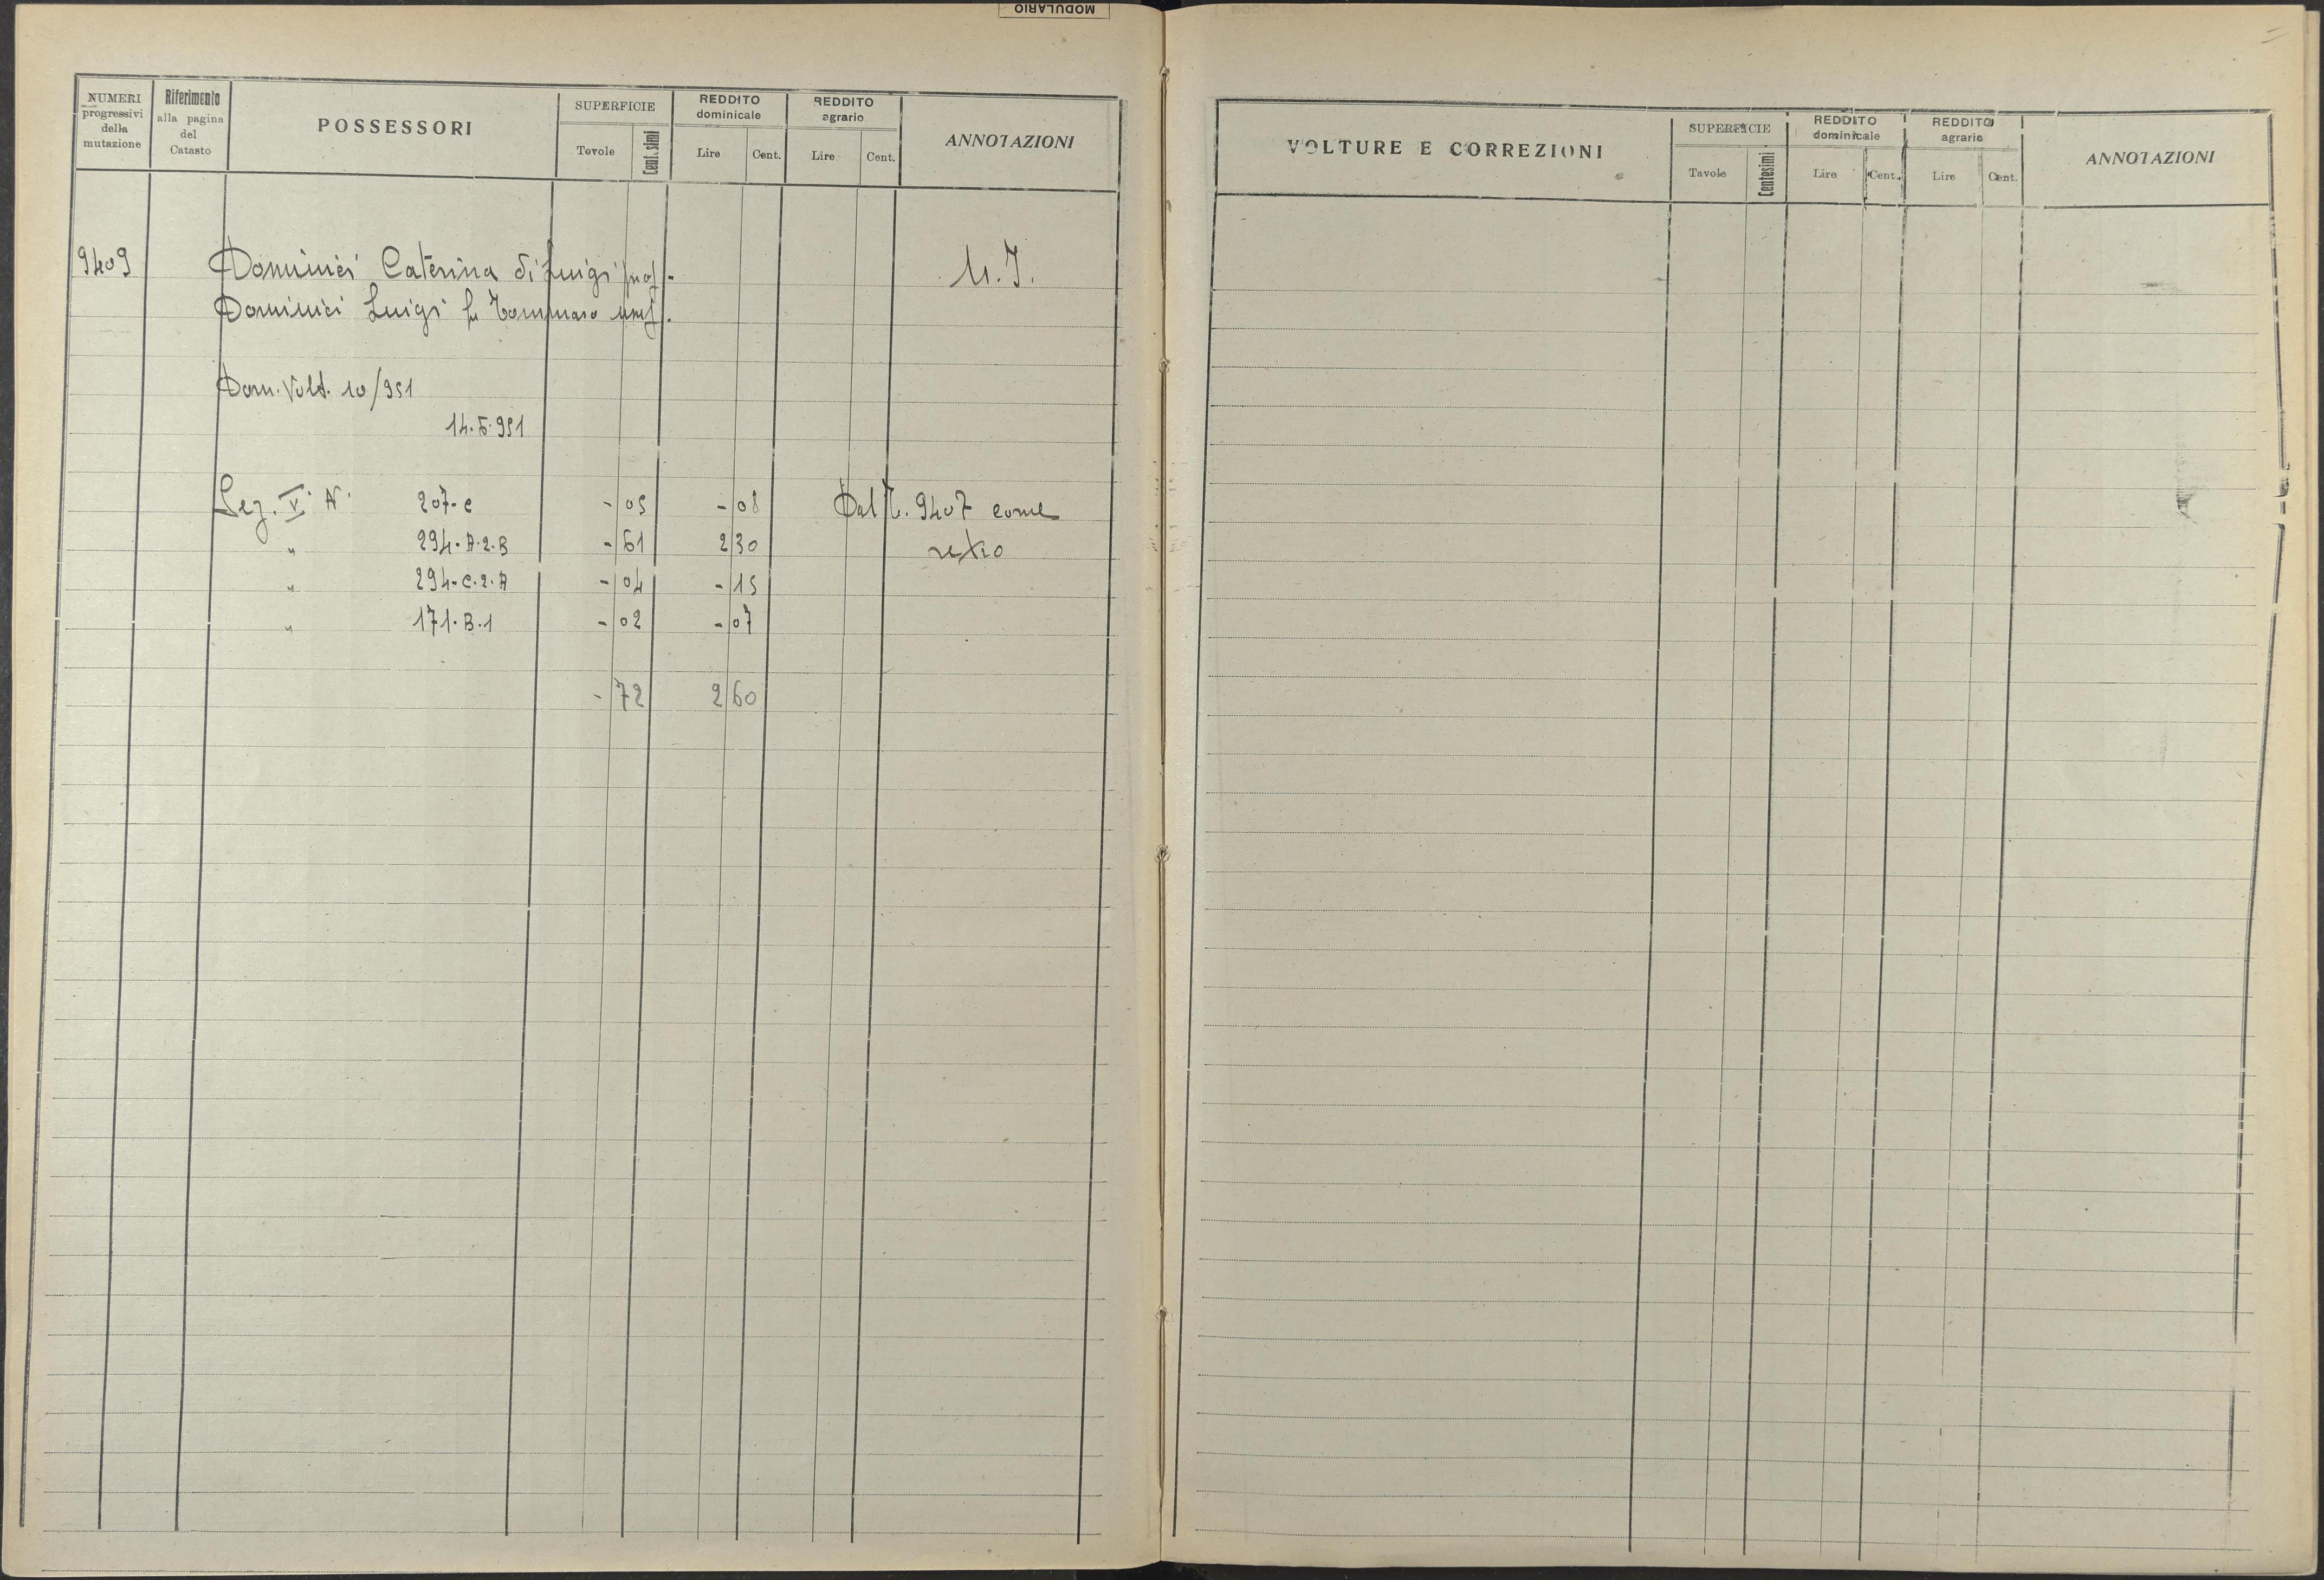 MODULARIO
NUMERI progressivi della mutazione
Riferimento alla pagina del Catasto
POSSESSORI
SUPERFICIE
Tavole
Centesimi
REDDITO dominicale
Lire
Cent.
REDDITO agrario
Lire
Cent.
ANNOTAZIONI
9409 Dominici Caterina di Luigi prop. M.I.
Dominici Luigi fu Tommaso usuf.
Dom. Volt. 10/951
14.5.951
Sez. V. N. 207-C - 05 - 08 Dal T. 9407 come
" 294-A.2.B - 61 2 30 retro
" 294-C.2.A - 04 - 15
" 171.B.1 - 02 - 07
- 72 2 60
VOLTURE E CORREZIONI
SUPERFICIE
Tavole
Centesimi
REDDITO dominicale
Lire
Cent.
REDDITO agrario
Lire
Cent.
ANNOTAZIONI